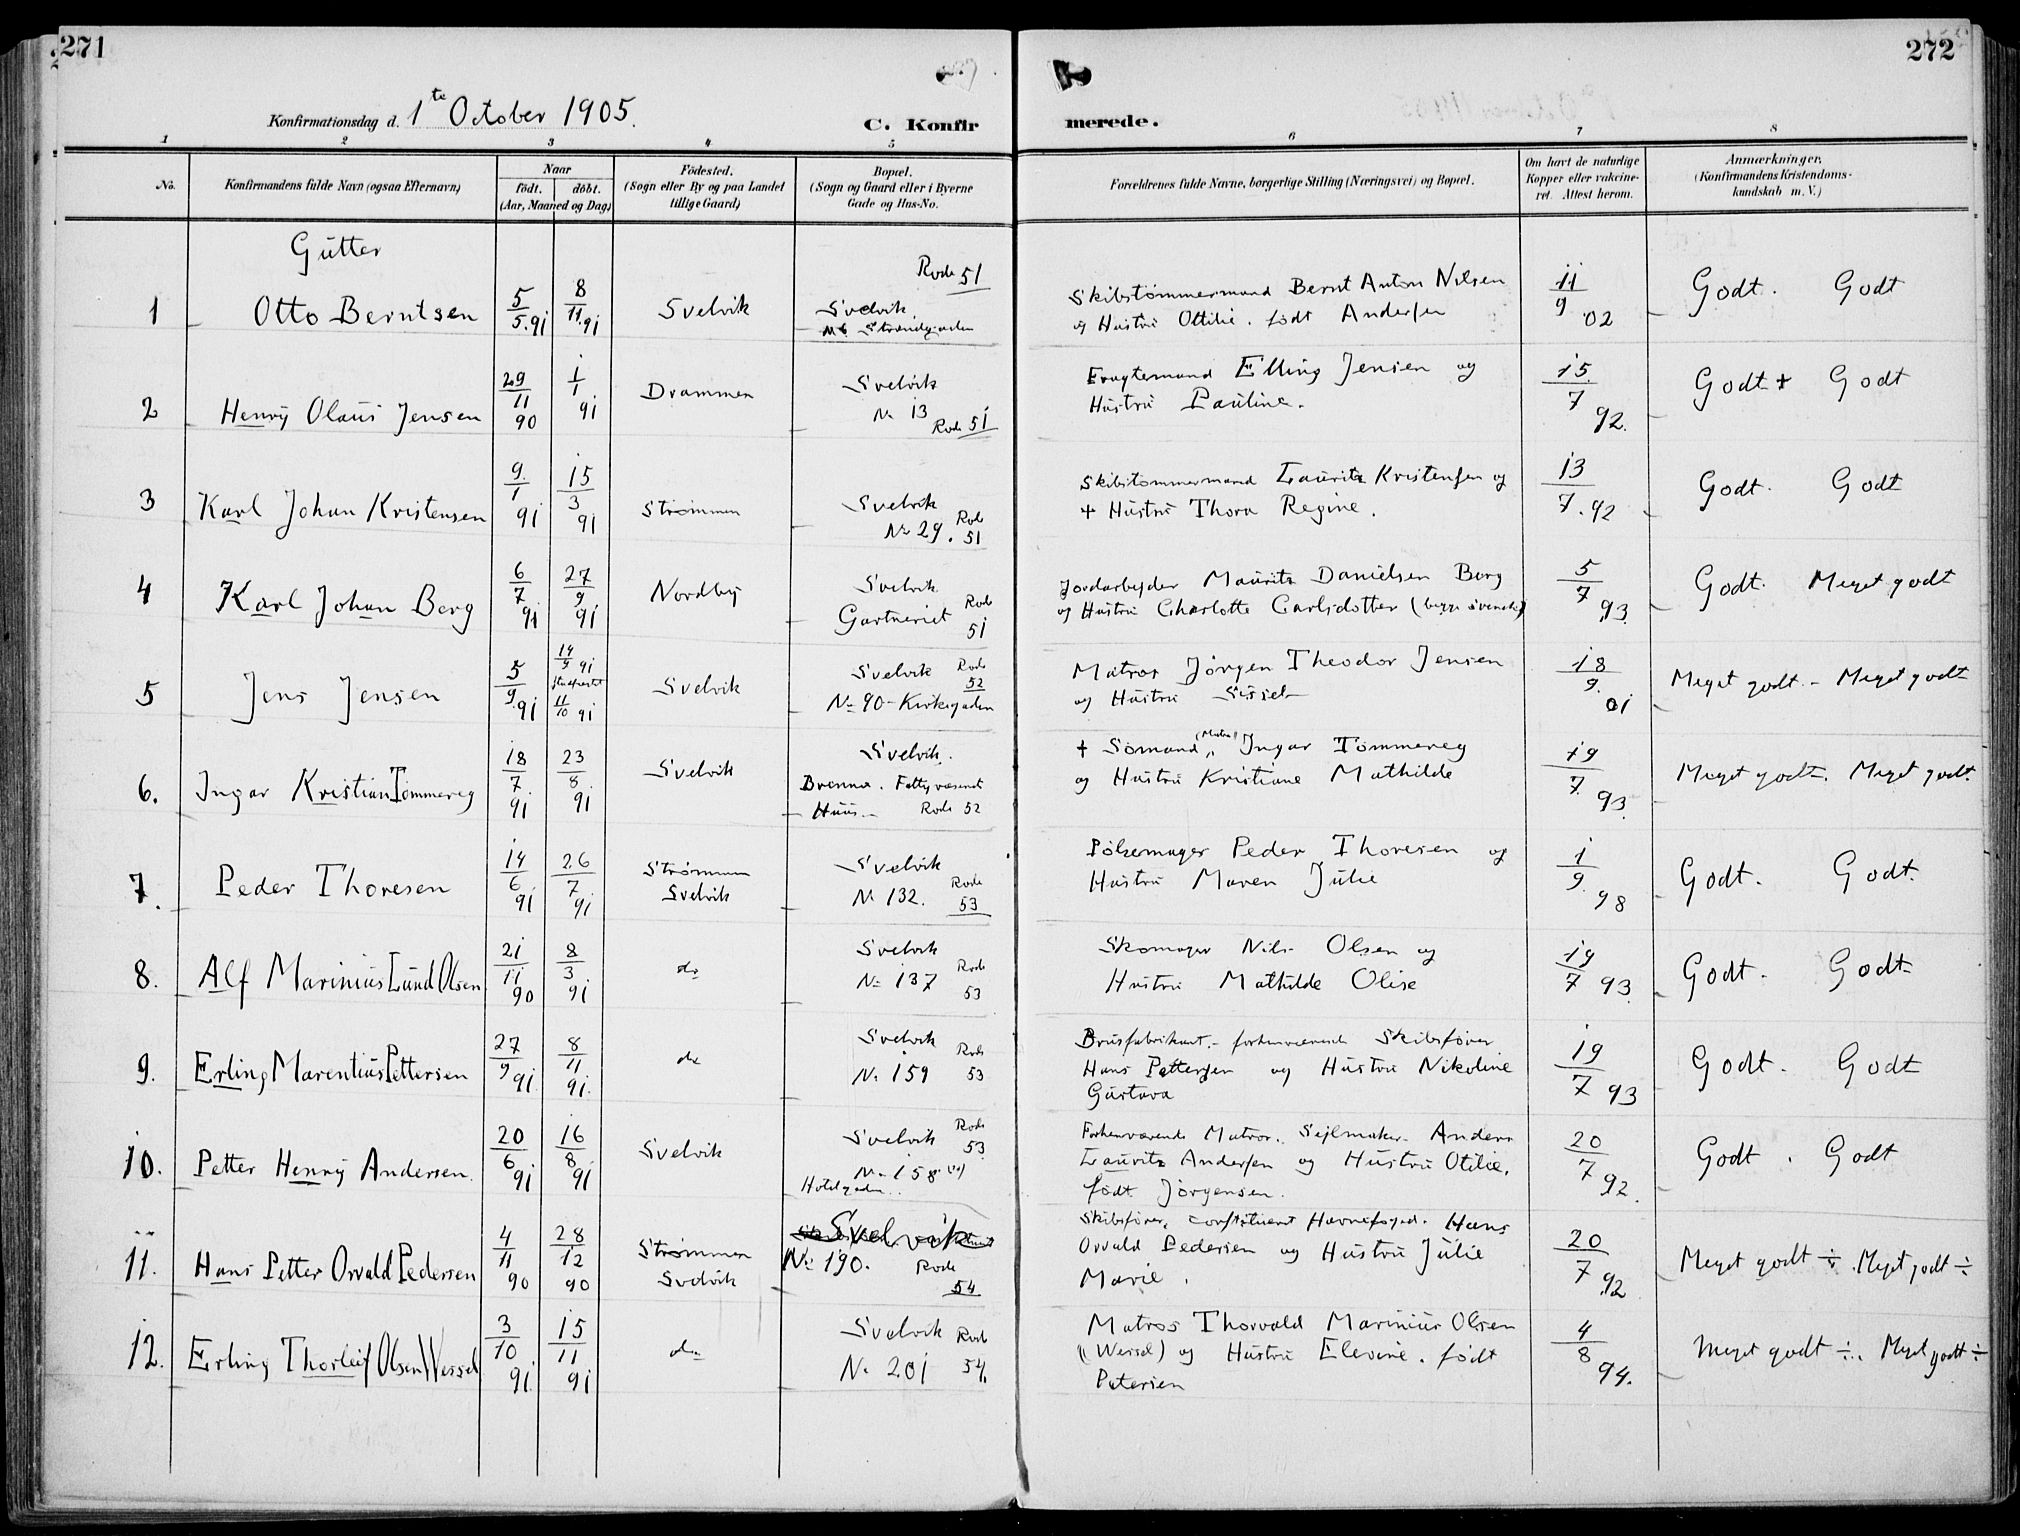 271
272
Konfirmationsdag d. 1te October 1905.
C. Konfirmerede.
1 2 3 4 5 6 7 8
No.
Konfirmandens fulde Navn (ogsaa Efternavn)
Naar
födt. döbt.
(Aar, Maaned og Dag)
Födested.
(Sogn eller By og paa Landet
tillige Gaard)
Bopæl.
(Sogn og Gaard eller i Byerne
Gade og Hus-No.
Forældrenes fulde Navne, borgerlige Stilling (Næringsvei) og Bopæl.
Om havt de naturlige
Kopper eller vakcine-
ret. Attest herom.
Anmærkninger.
(Konfirmandens Kristendoms-
kundskab m. V.)
Gutter
1 Otto Berntsen 5/5.91 8/11.91 Svelvik Svelvik Rode 51
Skibstømmermand Bernt Anton Nilsen
og Hustru Ottilie. født Andersen
11/9 02 Godt. Godt
2 Henry Olaus Jensen 29/11 90 1/1 91 Drammen Svelvik
No 13 Rode 51
Fragtemand Elling Jensen og
Hustru Pauline.
15/7 92. Godt + Godt
3 Karl Johan Kristensen 9/1 91 15/3 91 Strømmen Svelvik
No 29. Rode 51
Skibstømmermand Lauritz Kristensen og
+ Hustru Thora Regine.
13/7.92 Godt. Godt
4 Karl Johan Berg 6/7 91 27/9 91 Nordby Svelvik
Gartneriet Rode 51
Jordarbejder Mauritz Danielsen Berg
og Hustru Charlotte Carlsdotter (begge svenske)
5/7 93. Godt. Meget godt
5 Jens Jensen 5/9.91 14/9 91 11/10 91 Svelvik Svelvik Rode 52
No 90 - Kirkegaden
Matros Jørgen Theodor Jensen
og Hustru Sissel
18/9. 01 Meget godt. - Meget godt
6. Ingar Kristian Tømmereg 18/7 91 23/8 91 Svelvik Svelvik.
Brenna. Fattigvæsenets
Huus Rode 52
+ Sømand (Matros) Ingar Tømmereg
og Hustru Kristiane Mathilde
19/7 93. Meget godt. Meget godt.
7. Peder Thoresen 14/6 91 26/7 91 Strømmen
Svelvik Svelvik
No 132. Rode 53
Pølsemager Peder Thoresen og
Hustru Maren Julie
1/9. 98 Godt. Godt.
8. Alf Marinius Lund Olsen 21/11 90 8/3 91 do Svelvik
No 137 Rode 53
Skomager Nils Olsen og
Hustru Mathilde Olise
19/7 93. Godt. Godt
9. Erling Marentius Pettersen 27/9 91 8/11 91. do Svelvik
No 159 Rode 53
Brusfabrikant. - forhenværende Skibsfører
Hans Pettersen og Hustru Nikoline
Gustava
19/7 93 Godt. Godt
10. Petter Henry Andersen. 20/6 91 16/8 91 Svelvik Svelvik Rode 53
No 158
Hotelgaden
Forhenværende Matros. Sejlmaker. Anders
Lauritz Andersen og Hustru Otilie.
født Jørgensen.
20/7 92. Godt. Godt
11. Hans Petter Osvald Pedersen 4/11 90 28/12 90 Strømmen
Svelvik Svelvik
No 190. Rode 54
Skibsfører, constitueret Havnefoged. Hans
Osvald Pedersen og Hustru Julie
Marie.
20/7 92 Meget godt ÷. Meget godt ÷
12. Erling Thorleif Olsen Wessel 3/10 91. 15/11 91 do Svelvik
No 201 Rode 54.
Matros Thorvald Marinius Olsen
(Wessel) og Hustru Elevine. født
Petersen
4/8 94. Meget godt ÷. Meget godt ÷